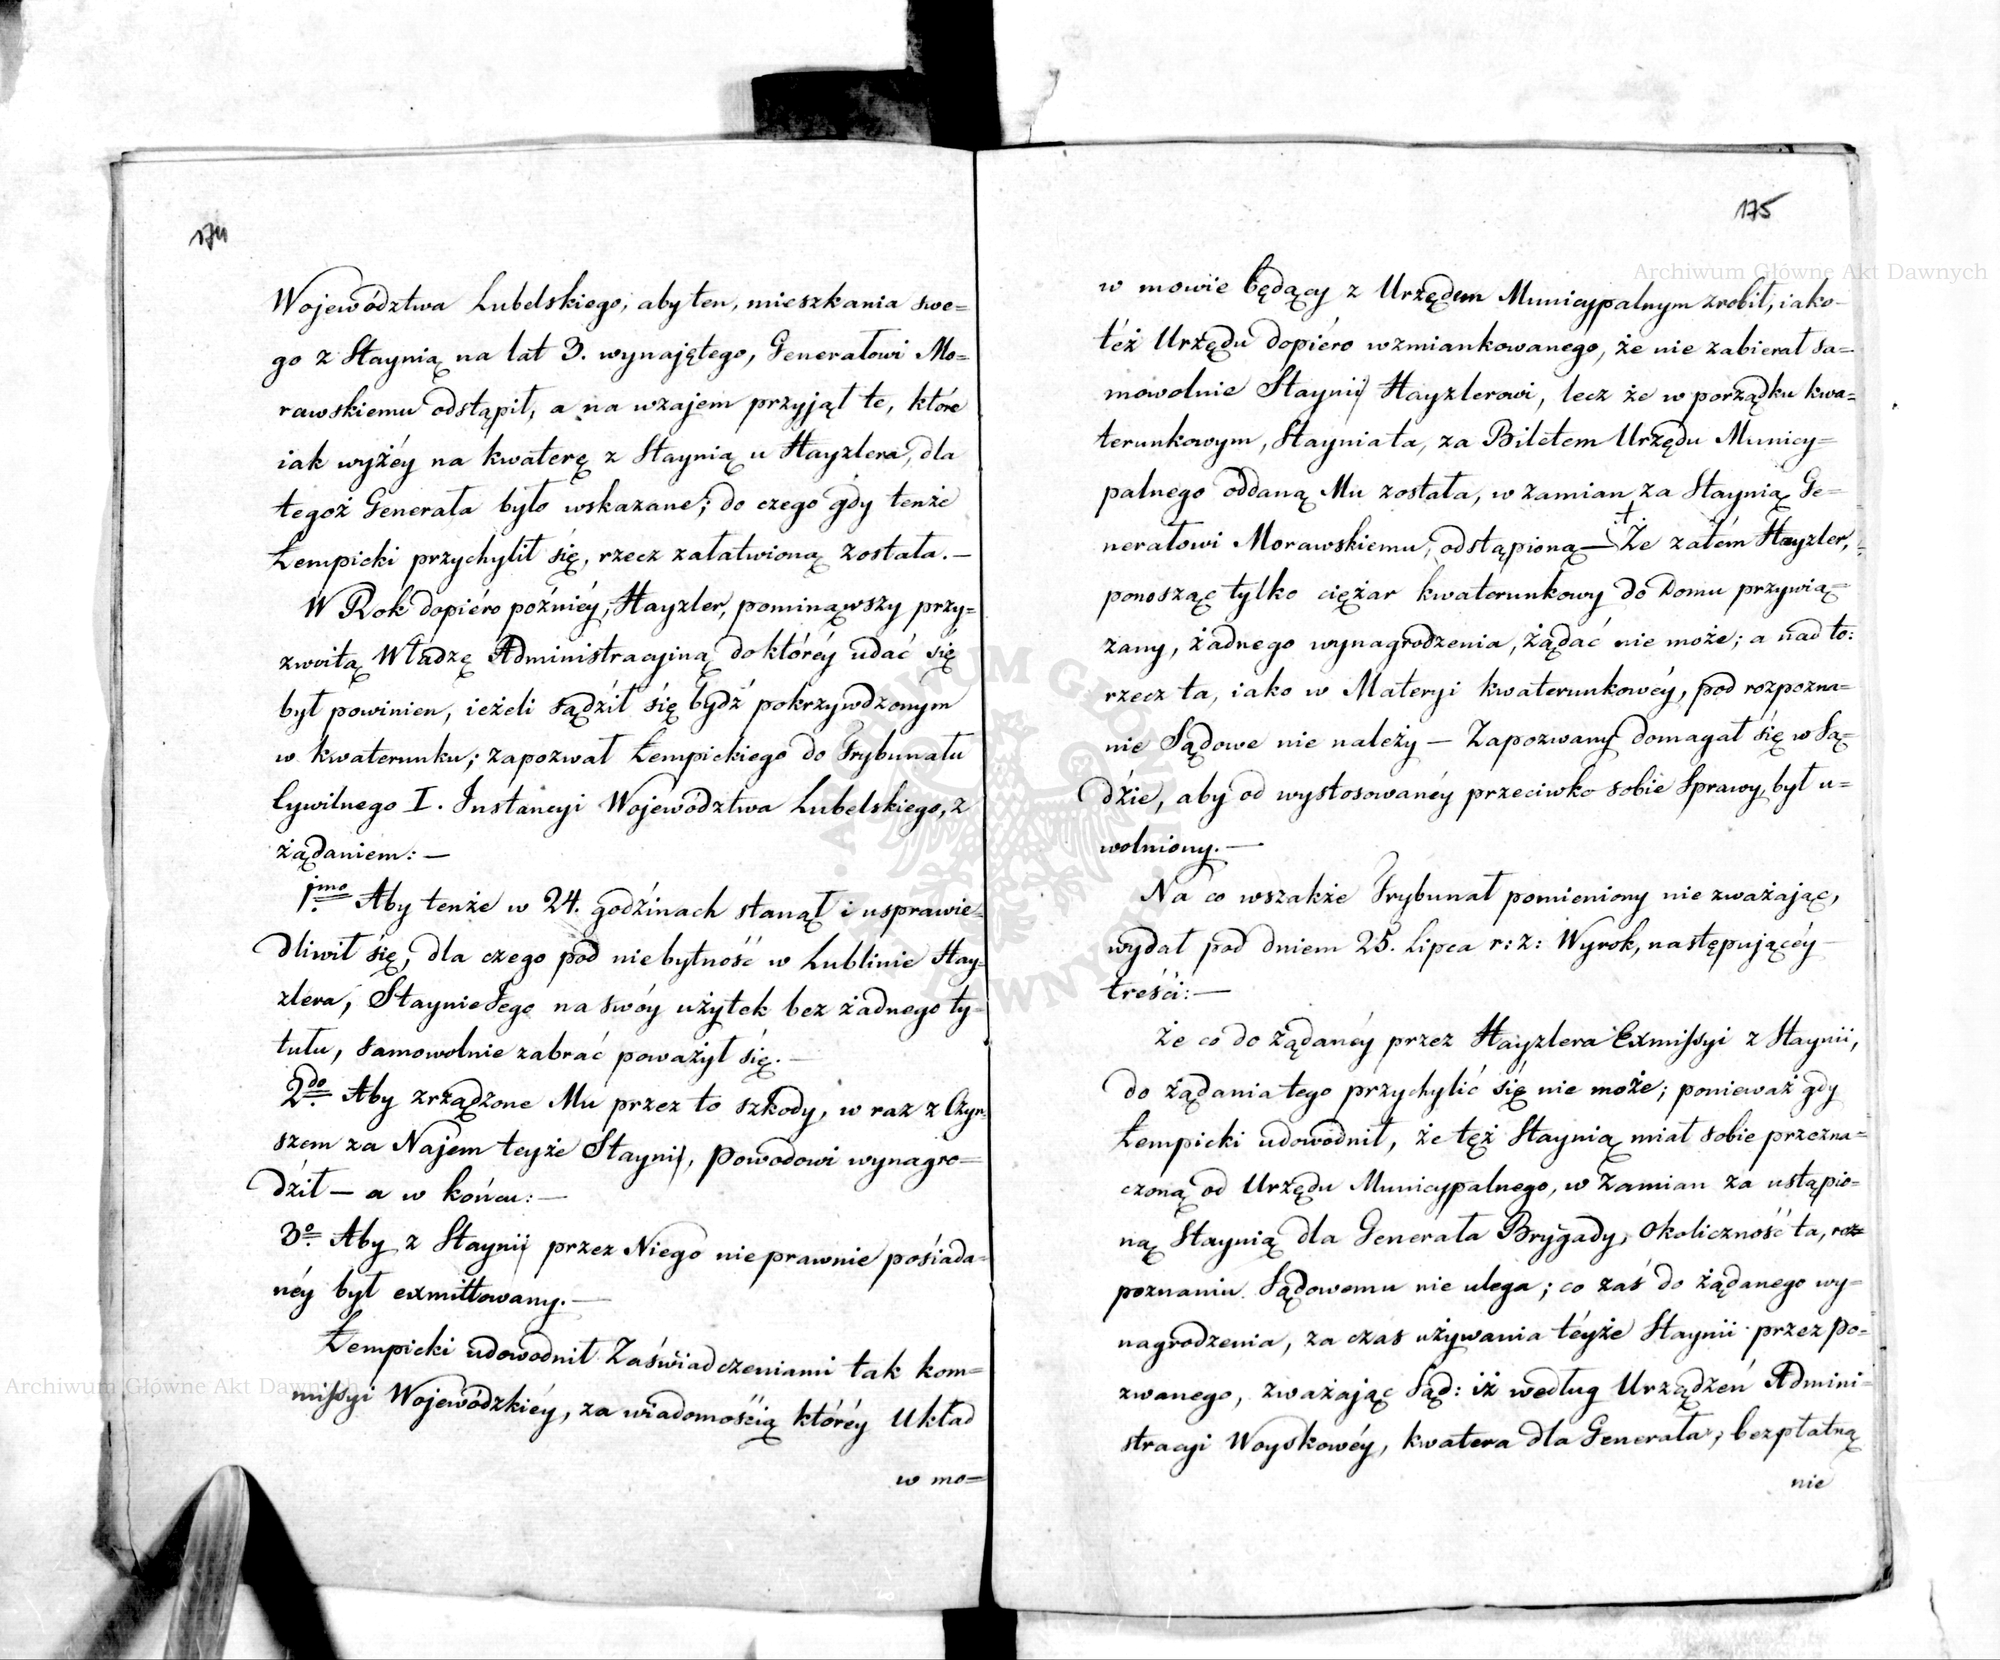 174
Województwa Lubelskiego, aby ten, mieszkania swe=
go z Staynią na lat 3. wynajętego, Generałowi Mo=
rawskiemu odstąpił, a na wzajem przyjął te, które
iak wyżéy na kwaterę z Staynią u Hayzlera, dla
tegoż Generała było wskazane; do czego gdy tenże
Łempicki przychylił się, rzecz załatwioną została.—
W Rok dopiéro poźniéy, Hayzler, pominąwszy przy=
zwoitą Władzę Administracyiną do któréy udać się
był powinien, ieżeli sądził się bydź pokrzywdzonym
w kwaterunku; zapozwał Łempickiego do Trybunału
Cywilnego I. Instancyi Województwa Lubelskiego, z
żądaniem: —
1mo Aby tenże w 24. godzinach stanął i usprawie=
dliwił się, dla czego pod niebytność w Lublinie Hay=
zlera, Staynie Jego na swóy użytek bez żadnego ty=
tułu, samowolnie zabrać poważył się. —
2do Aby zrządzone Mu przez to szkody, w raz z Czyn=
szem za Najem teyże Staynij, Powodowi wynagro=
dził — a w końcu: —
3o Aby z Staynij przez Niego nieprawnie posiada=
néy był exmittowany. —
Łempicki udowodnił Zaświadczeniami tak kom=
missyi Wojewódzkiéy, za wiadomością któréy Układ
w mo=
175
w mowie będący z Urzędem Municypalnym zrobił, iako=
téż Urzędu dopiéro wzmiankowanego, że nie zabierał sa=
mowolnie Staynij Hayzlerowi, lecz że w porządku kwa=
terunkowym, Staynia ta, za Biletem Urzędu Municy=
palnego oddaną Mu została, w zamian za Staynią Ge=
nerałowi Morawskiemu, odstąpioną — Że zatém Hayzler,
ponosząc tylko ciężar kwaterunkowy do Domu przywią=
zany, żadnego wynagrodzenia, żądać nie może; a nad to:
rzecz ta, iako w Materyi kwaterunkowéy, pod rozpozna=
nie Sądowe nie należy — Zapozwany domagał się w Są=
dzie, aby od wystosowanéy przeciwko sobie Sprawy, był u=
wolniony. —
Na co wszakże Trybunał pomieniony nie zważając,
wydał pod dniem 25. Lipca r: z: Wyrok, następującéy
treści: —
Że co do żądanéy przez Hayzlera Exmissyi z Staynii,
do żądania tego przychylić się nie może; ponieważ gdy
Łempicki udowodnił, że tęż Staynią miał sobie przezna=
czoną od Urzędu Municypalnego, w Zamian za ustąpio=
ną Staynią dla Generała Brygady, Okoliczność ta, roz=
poznaniu Sądowemu nie ulega; co zaś do żądanego wy=
nagrodzenia, za czas używania téyże Staynii przez po=
zwanego, zważając Sąd: iż według Urządzeń Admini=
stracyi Woyskowéy, kwatera dla Generała, bezpłatną
nie
Archiwum Główne Akt Dawnych
Archiwum Główne Akt Dawnych